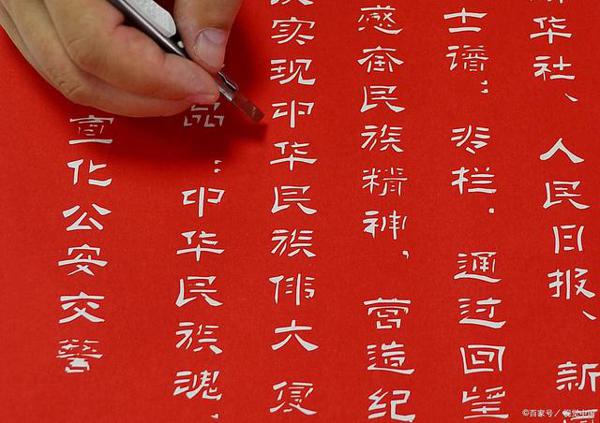 华社、人民日报、新
士谱:专栏.通过回望
感奋民族精神、营造纪
实现中华民族伟大
品:中华民族魂.
宣化公安交警
©百家号/视觉中国